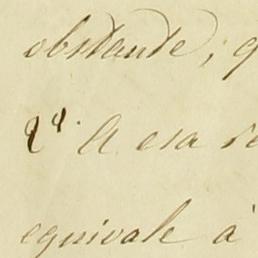 obstante; q
2ª A esa re
equivale à